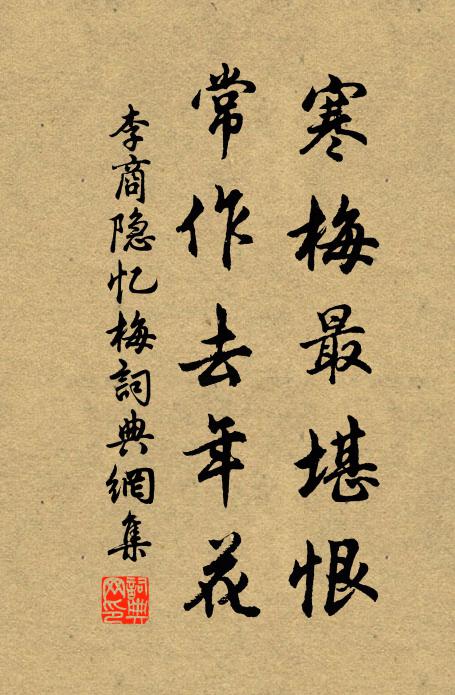 寒梅最堪恨
常作去年花
李商隐忆梅詞典網集
詞典
网印